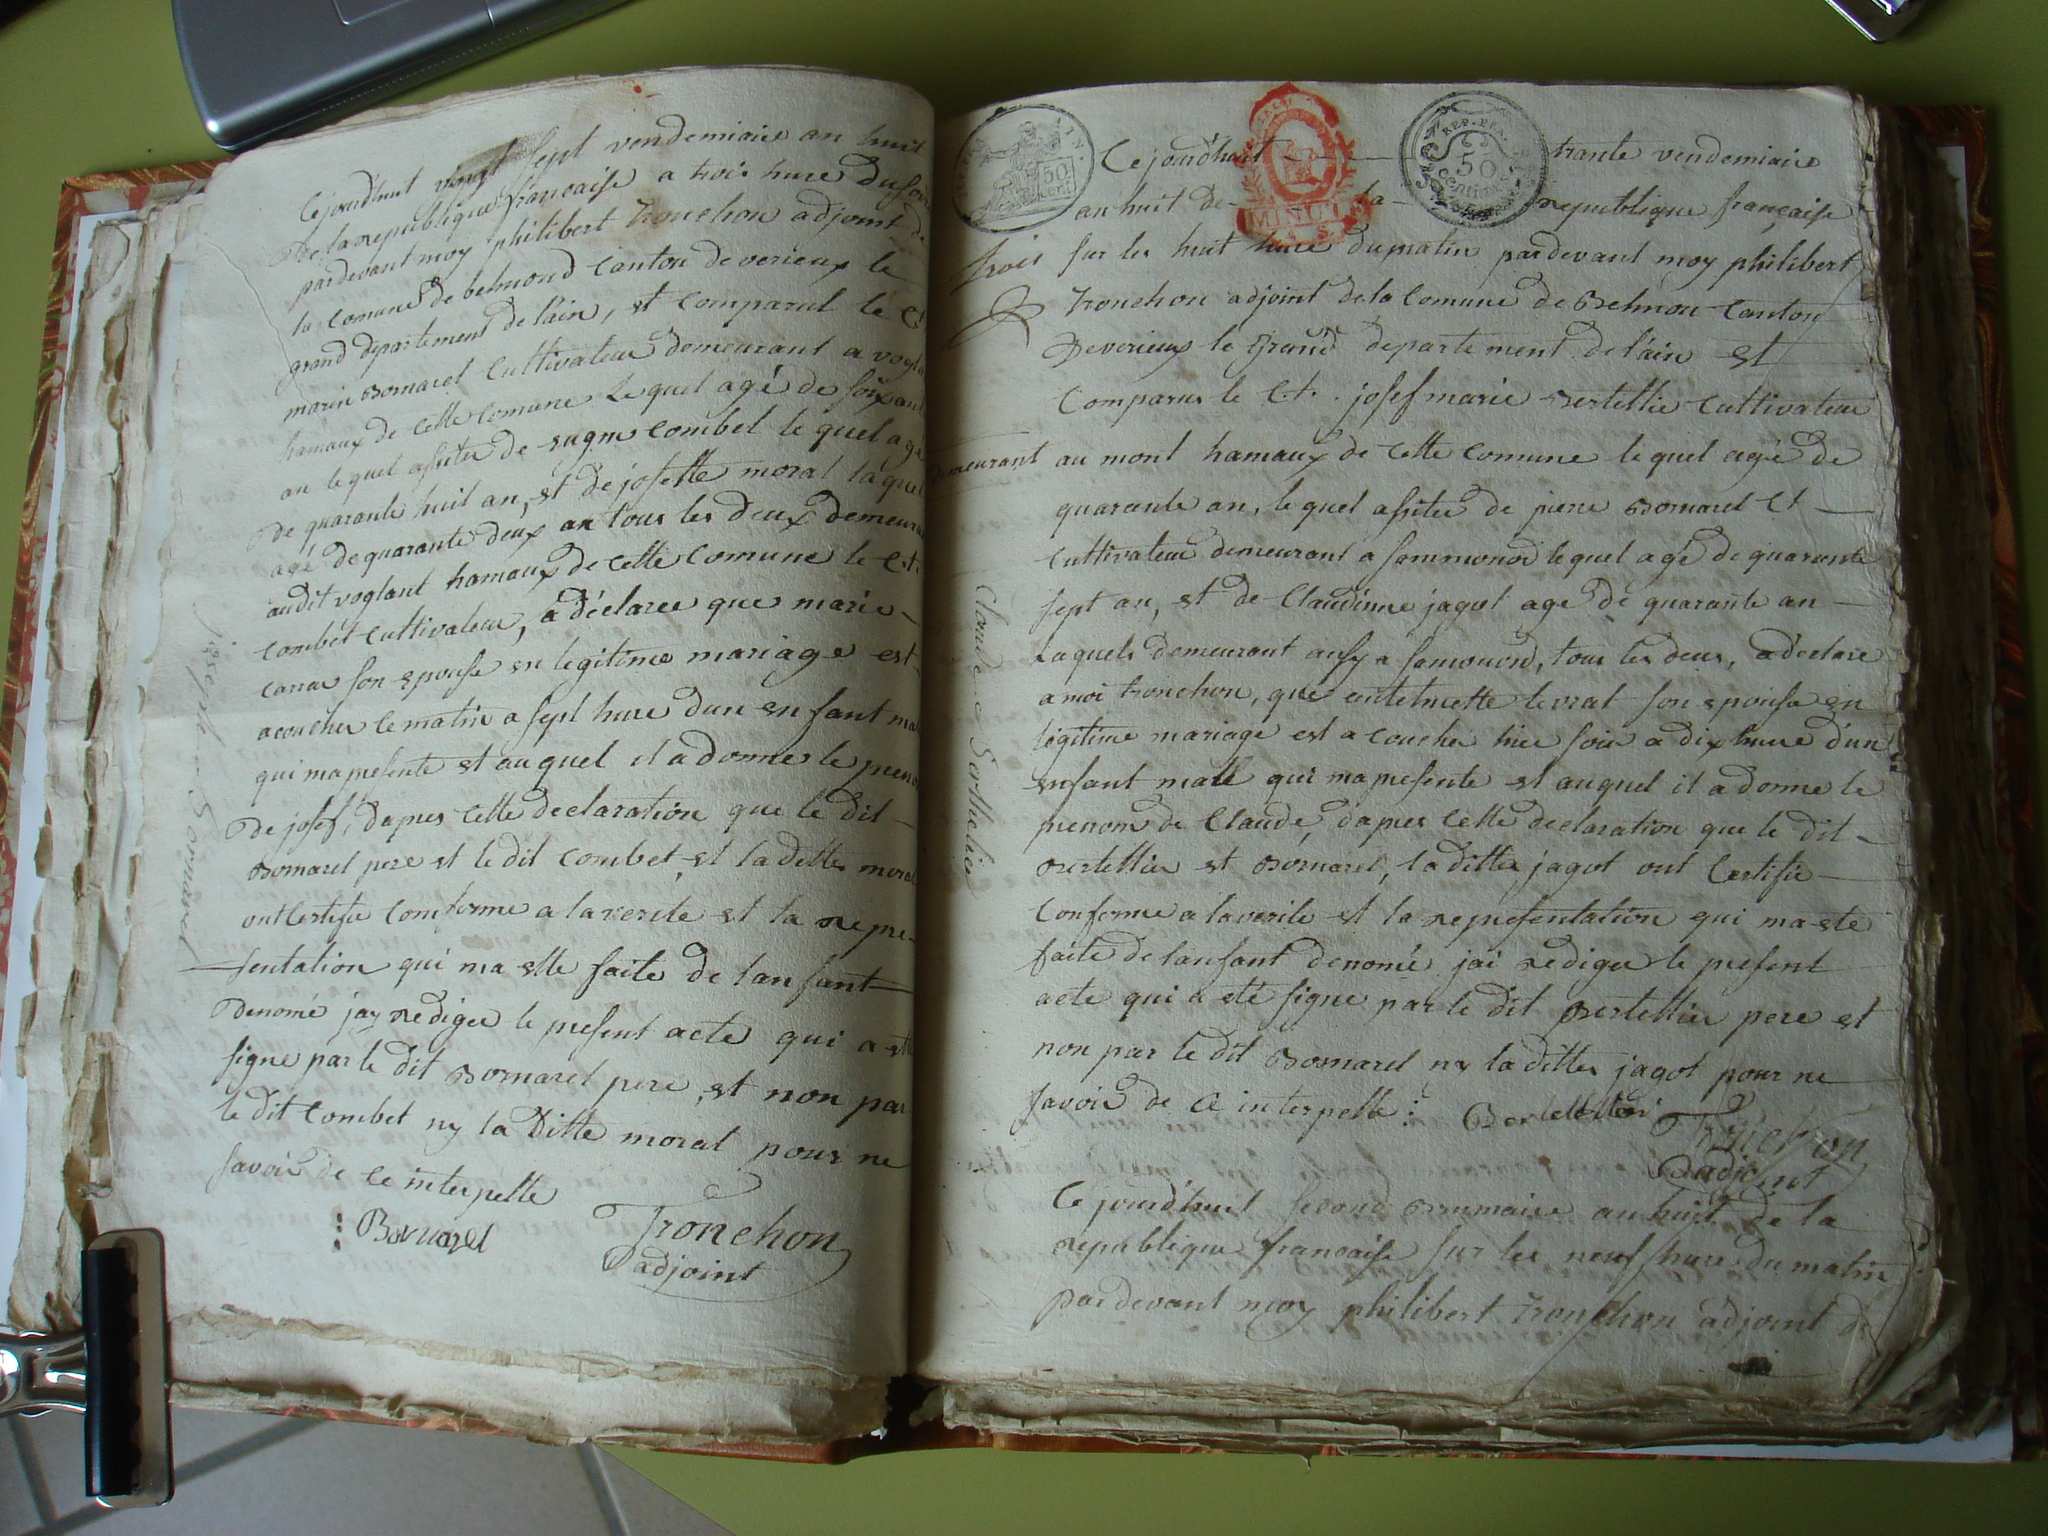 Cejourdhuit vingt sept vendemiaire an huit
De la republique françaisse a trois hure du soire
pardevant moy philibert tronchon adjoint de
la comune de belmond canton de verieux le
grand departement de lain, et comparut le Ct
marin Bornarel cultivateur demeurant a vogla
hamaux de cette comune lequel agé de soixant
an lequel assiter de combet le quel agé
de quarante huit an, et de josette moral laquel
agé de quarante deux an tous les deux demeura
audit voglant hamaux de cette comune le Ct.
combet cultivateur, a déclaree que marie
son epouse en legitime mariage est
acoucher ce matin a sept hure dun enfant mal
qui ma presente et auquel il a donne le preno
De josef, dapres cette declaration que le dit
Bornarel pere et le dit combet, et la ditte moral
ont certifie comforme a la verite et la repre-
sentation qui ma ette faite de lanfant
Denomé jay rediger le present acte qui a ette
signe par le dit Bornarel pere, et non par
le dit combet ny la ditte moral pour ne
savoir de ce interpelle
Bornarel Tronchon
adjoint
josephe Bornarel
50 cent.
MINUTE
REP. FRA.
50
centimes
Cejourdhuit trante vendemiaire
an huit de la republique françaisse
trois
sur les huit hure du matin pardevant moy philibert
tronchon adjoint de la comune de Belmon canton
De verieux le grand departement de lain et
comparus le Ct. josef marie Bertellie cultivateur
demeurant au mont hamaux de cette comune le quel agé de
quarante an, le quel assiter de piere Bornarel Ct
cultivateur demeurant a sammonod lequel agé de quarante
sept an, et de Claudinne jagot age de quarante an
laquels demeurant ausy a samonod, tous les deux, a déclare
a moi tronchon, que levrat son epousse en
légitime mariage est a coucher hier soir a dix hure d'un
enfant male qui ma presente et auquel il a donne le
prenom de Claude, dapres cette declaration que le dit
Bertellier et Bornarel, la ditte jagot ont certifie
conforme a la verite et la representation qui ma ete
faite de lanfant denomé jai rediger le present
acte qui a eté signe par le dit Bertellier pere et
non par le dit Bornarel ny la ditte jagot pour ne
savoir de ce interpelle :
Tronchon
adjoint
Claude Berthelier
Cejourdhuit second Brumaire an huit de la
republique francaisse sur les neuf hure du matin
pardevant moy philibert tronchon adjoint de